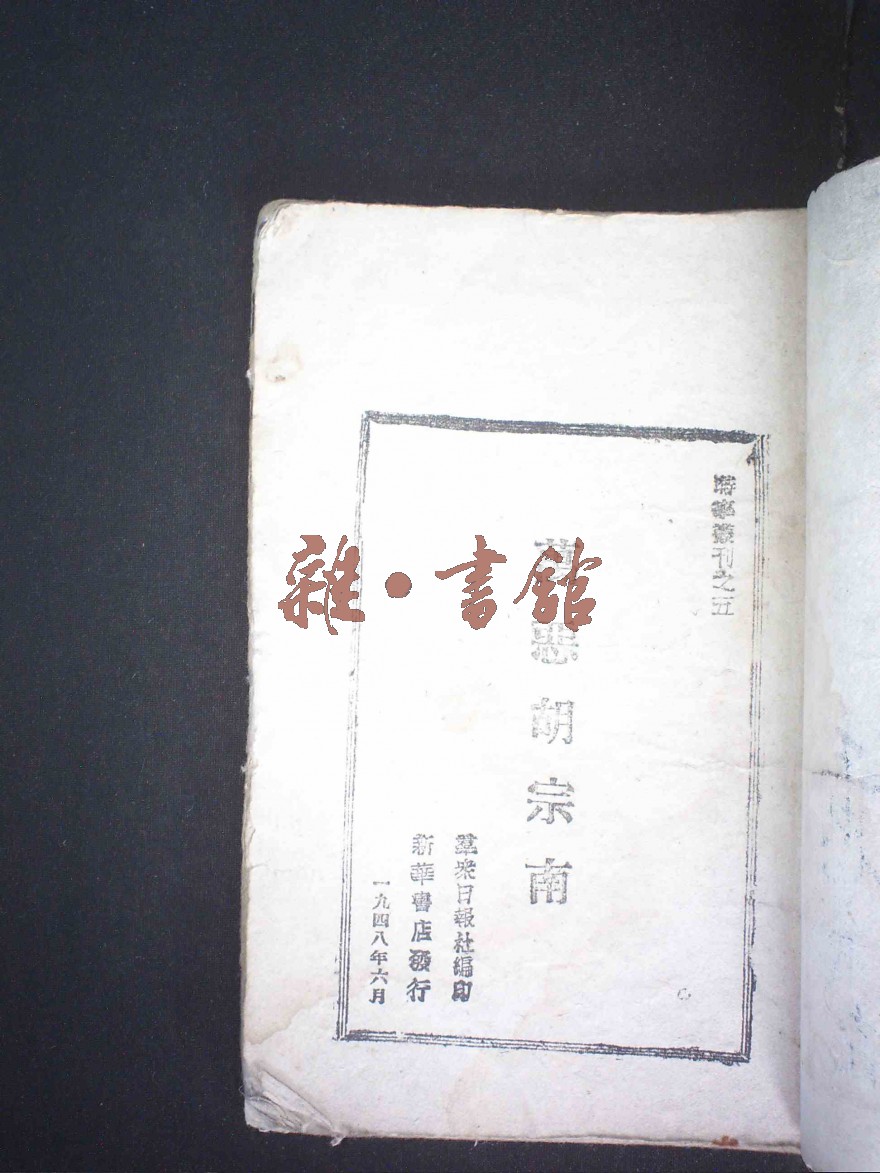 時事叢刊之五
萬惡胡宗南
羣衆日報社編印
新華書店發行
一九四八年六月
雜·書館